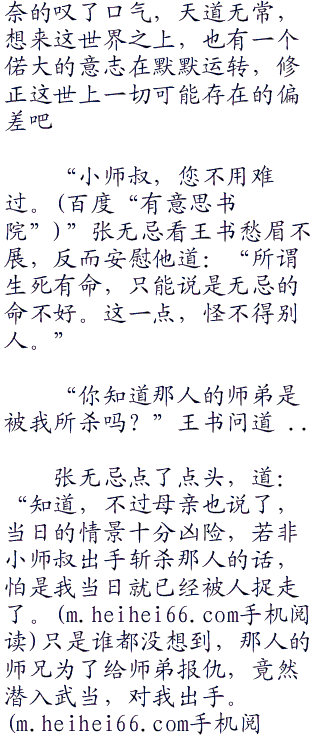 奈的叹了口气，天道无常，
想来这世界之上，也有一个
偌大的意志在默默运转，修
正这世上一切可能存在的偏
差吧
“小师叔，您不用难
过。(百度“有意思书
院”)”张无忌看王书愁眉不
展，反而安慰他道：“所谓
生死有命，只能说是无忌的
命不好。这一点，怪不得别
人。”
“你知道那人的师弟是
被我所杀吗？”王书问道 ..
张无忌点了点头，道：
“知道，不过母亲也说了，
当日的情景十分凶险，若非
小师叔出手斩杀那人的话，
怕是我当日就已经被人捉走
了。(m.heihei66.com手机阅
读)只是谁都没想到，那人的
师兄为了给师弟报仇，竟然
潜入武当，对我出手。
(m.heihei66.com手机阅